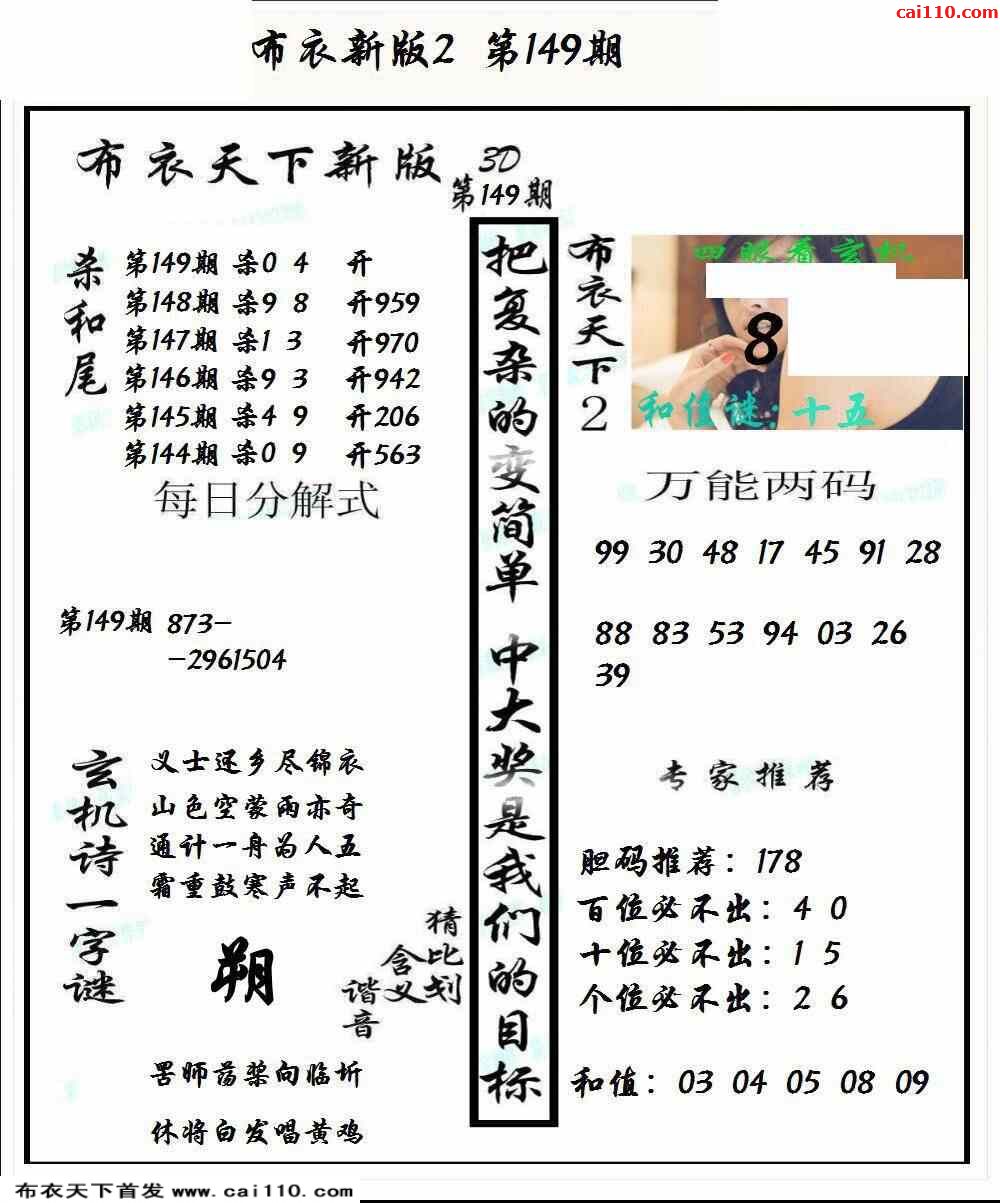 cai110.com
布衣新版2 第149期
布衣天下新版
3D
第149期
杀和尾
第149期 杀0 4 开
第148期 杀9 8 开959
第147期 杀1 3 开970
第146期 杀9 3 开942
第145期 杀4 9 开206
第144期 杀0 9 开563
每日分解式
第149期 873-
-2961504
玄机诗一字谜
义士还乡尽锦衣
山色空蒙雨亦奇
通计一舟为人五
霜重鼓寒声不起
朔
猜比划
含义
谐音
罟师荡桨向临圻
休将白发唱黄鸡
把复杂的变简单 中大奖是我们的目标
布衣天下2
四眼看玄机
8
和值谜:十五
万能两码
99 30 48 17 45 91 28
88 83 53 94 03 26
39
专家推荐
胆码推荐：178
百位必不出：4 0
十位必不出：1 5
个位必不出：2 6
和值：03 04 05 08 09
布衣天下首发 www.cai110.com